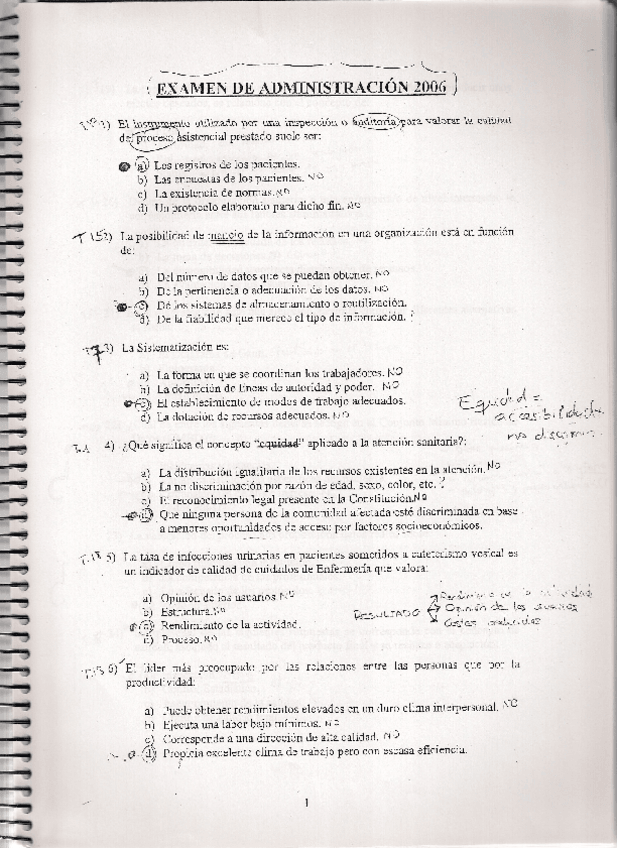 EXAMEN DE ADMINISTRACIÓN 2006
1) El instrumento utilizado por una inspección o auditoria para valorar la calidad
del proceso asistencial prestado suele ser:
a) Los registros de los pacientes.
b) Las encuestas de los pacientes. NO
c) La existencia de normas. NO
d) Un protocolo elaborado para dicho fin. NO
T 15 2) La posibilidad de manejo de la información en una organización está en función
de:
a) Del número de datos que se puedan obtener. NO
b) De la pertinencia o adecuación de los datos. NO
c) De los sistemas de almacenamiento o reutilización.
d) De la fiabilidad que merece el tipo de información. ?
3) La Sistematización es:
a) La forma en que se coordinan los trabajadores. NO
b) La definición de líneas de autoridad y poder. NO
c) El establecimiento de modos de trabajo adecuados.
d) La dotación de recursos adecuados. NO
Equidad =
accesibilidad
no discrimin.
4) ¿Qué significa el concepto "equidad" aplicado a la atención sanitaria?:
a) La distribución igualitaria de los recursos existentes en la atención. NO
b) La no discriminación por razón de edad, sexo, color, etc. ?
c) El reconocimiento legal presente en la Constitución. NO
d) Que ninguna persona de la comunidad afectada esté discriminada en base
a menores oportunidades de acceso por factores socioeconómicos.
T.13 5) La tasa de infecciones urinarias en pacientes sometidos a cateterismo vesical es
un indicador de calidad de cuidados de Enfermería que valora:
a) Opinión de los usuarios. NO
b) Estructura. NO
c) Rendimiento de la actividad.
d) Proceso. NO
RESULTADO
Rendimiento de la actividad
Opinión de los usuarios
Costes
6) El líder más preocupado por las relaciones entre las personas que por la
productividad:
a) Puede obtener rendimientos elevados en un duro clima interpersonal. NO
b) Ejecuta una labor bajo mínimos. NO
c) Corresponde a una dirección de alta calidad. NO
d) Propicia excelente clima de trabajo pero con escasa eficiencia.
1